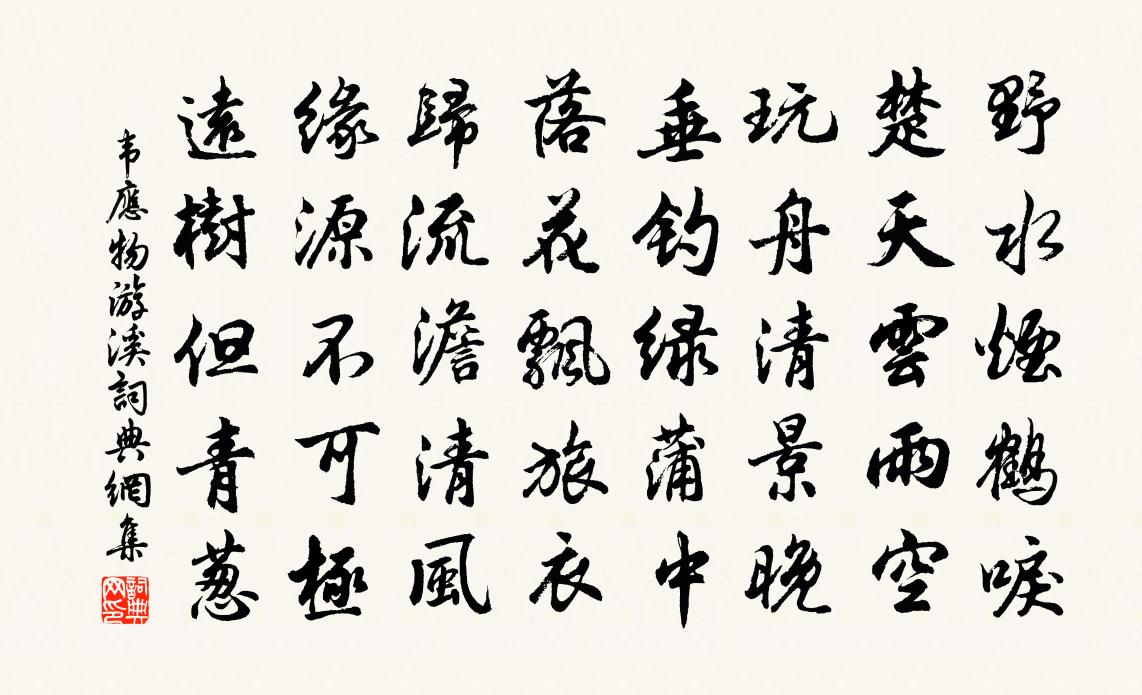 野水煙鶴唳
楚天雲雨空
玩舟清景晚
垂钓绿蒲中
落花飄旅衣
歸流澹清風
缘源不可極
遠樹但青葱
韦應物游溪詞典網集
詞典网印